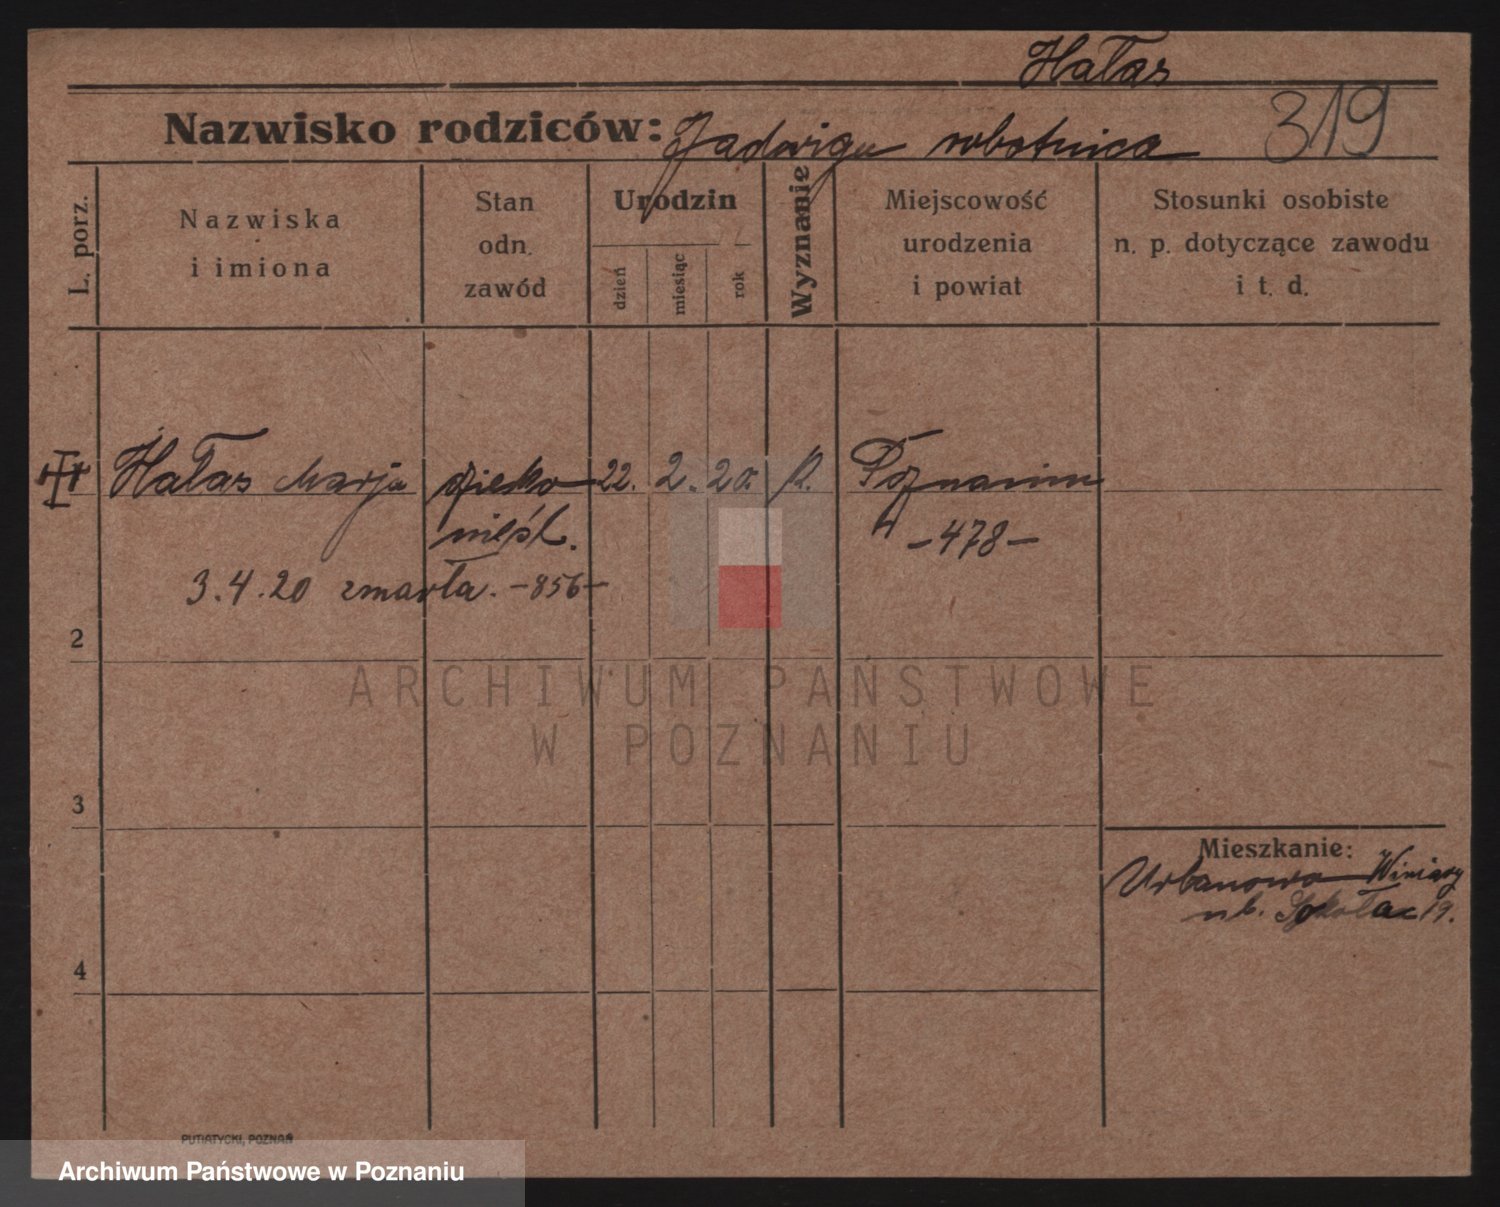 Hałas
Nazwisko rodziców: Jadwiga robotnica 319
L. porz.
Nazwiska
i imiona
Stan
odn.
zawód
Urodzin
dzień
miesiąc
rok
Wyznanie
Miejscowość
urodzenia
i powiat
Stosunki osobiste
n. p. dotyczące zawodu
i t. d.
Hałas Marja dziecko 22. 2. 20. Poznaniu
nieśl. -478-
3.4.20 zmarła. -856-
2
ARCHIWUM PAŃSTWOWE
W POZNANIU
3
Mieszkanie:
Urbanowo Winiary
Sokoła 19.
4
PUTIATYCKI, POZNAŃ
Archiwum Państwowe w Poznaniu